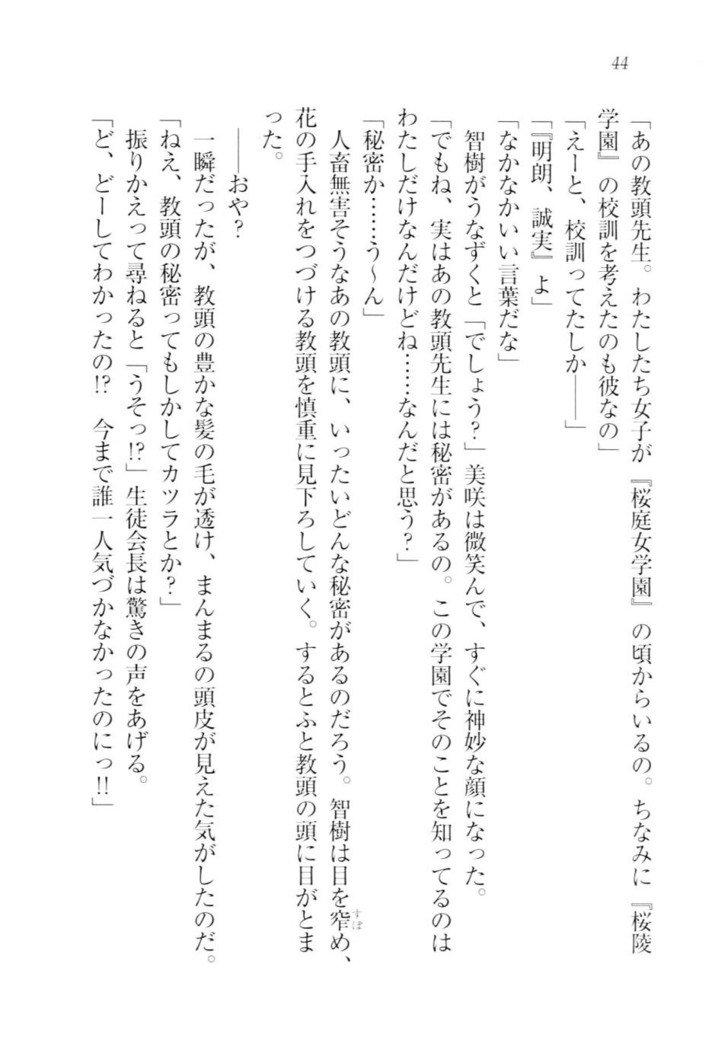 44
「あの教頭先生。わたしたち女子が『桜庭女学園』の頃からいるの。ちなみに『桜陵
学園』の校訓を考えたのも彼なの」
「えーと、校訓ってたしか――」
「『明朗、誠実』よ」
「なかなかいい言葉だな」
智樹がうなずくと「でしょう?」美咲は微笑んで、すぐに神妙な顔になった。
「でもね、実はあの教頭先生には秘密があるの。この学園でそのことを知ってるのは
わたしだけなんだけどね……なんだと思う?」
「秘密か……う〜ん」
人畜無害そうなあの教頭に、いったいどんな秘密があるのだろう。智樹は目を窄め、
すぼ
花の手入れをつづける教頭を慎重に見下ろしていく。するとふと教頭の頭に目がとま
った。
――おや?
一瞬だったが、教頭の豊かな髪の毛が透け、まんまるの頭皮が見えた気がしたのだ。
「ねえ、教頭の秘密ってもしかしてカツラとか?」
振りかえって尋ねると「うそっ!?」生徒会長は驚きの声をあげる。
「ど、どーしてわかったの!?　今まで誰一人気づかなかったのにっ!!」